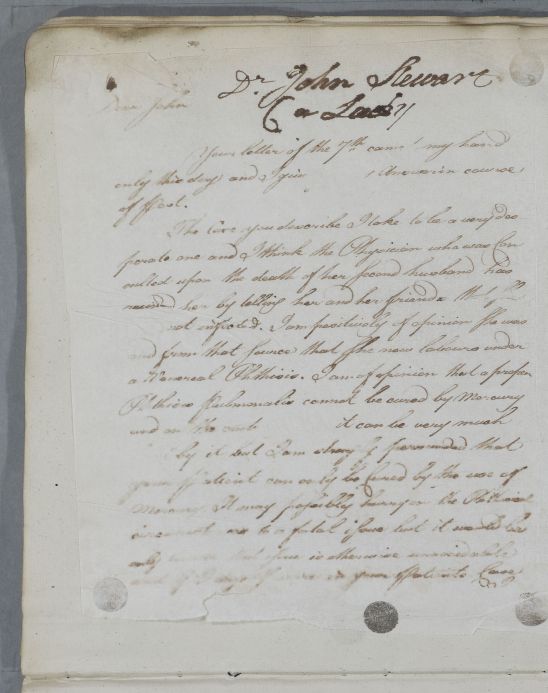 Dr John Stewart
(a Lady)
Dear John
Your letter of the 7th came my hand
only this day and I give Answer in course
of Post.
The case you describe I take to be a very des
perate one and I think the Physician who was Con
sulted upon the death of her second husband has
ruined her by telling her and her friends that She
not infected. I am positively of opinion She was
and from that source that She now labours under
a Venereal Phthisis. I am of opinion that a proper
Phthisis Pulmonalis cannot be cured by Mercury
and on the it can be very much
by it but I am strongly persuaded that
your Patient can only be Cured by the use of
Mercury. It may possibly hurry on the Phthisical
to a fatal issue but it would be
only that issue is otherwise unavoidable
and if I was in your Patients Case